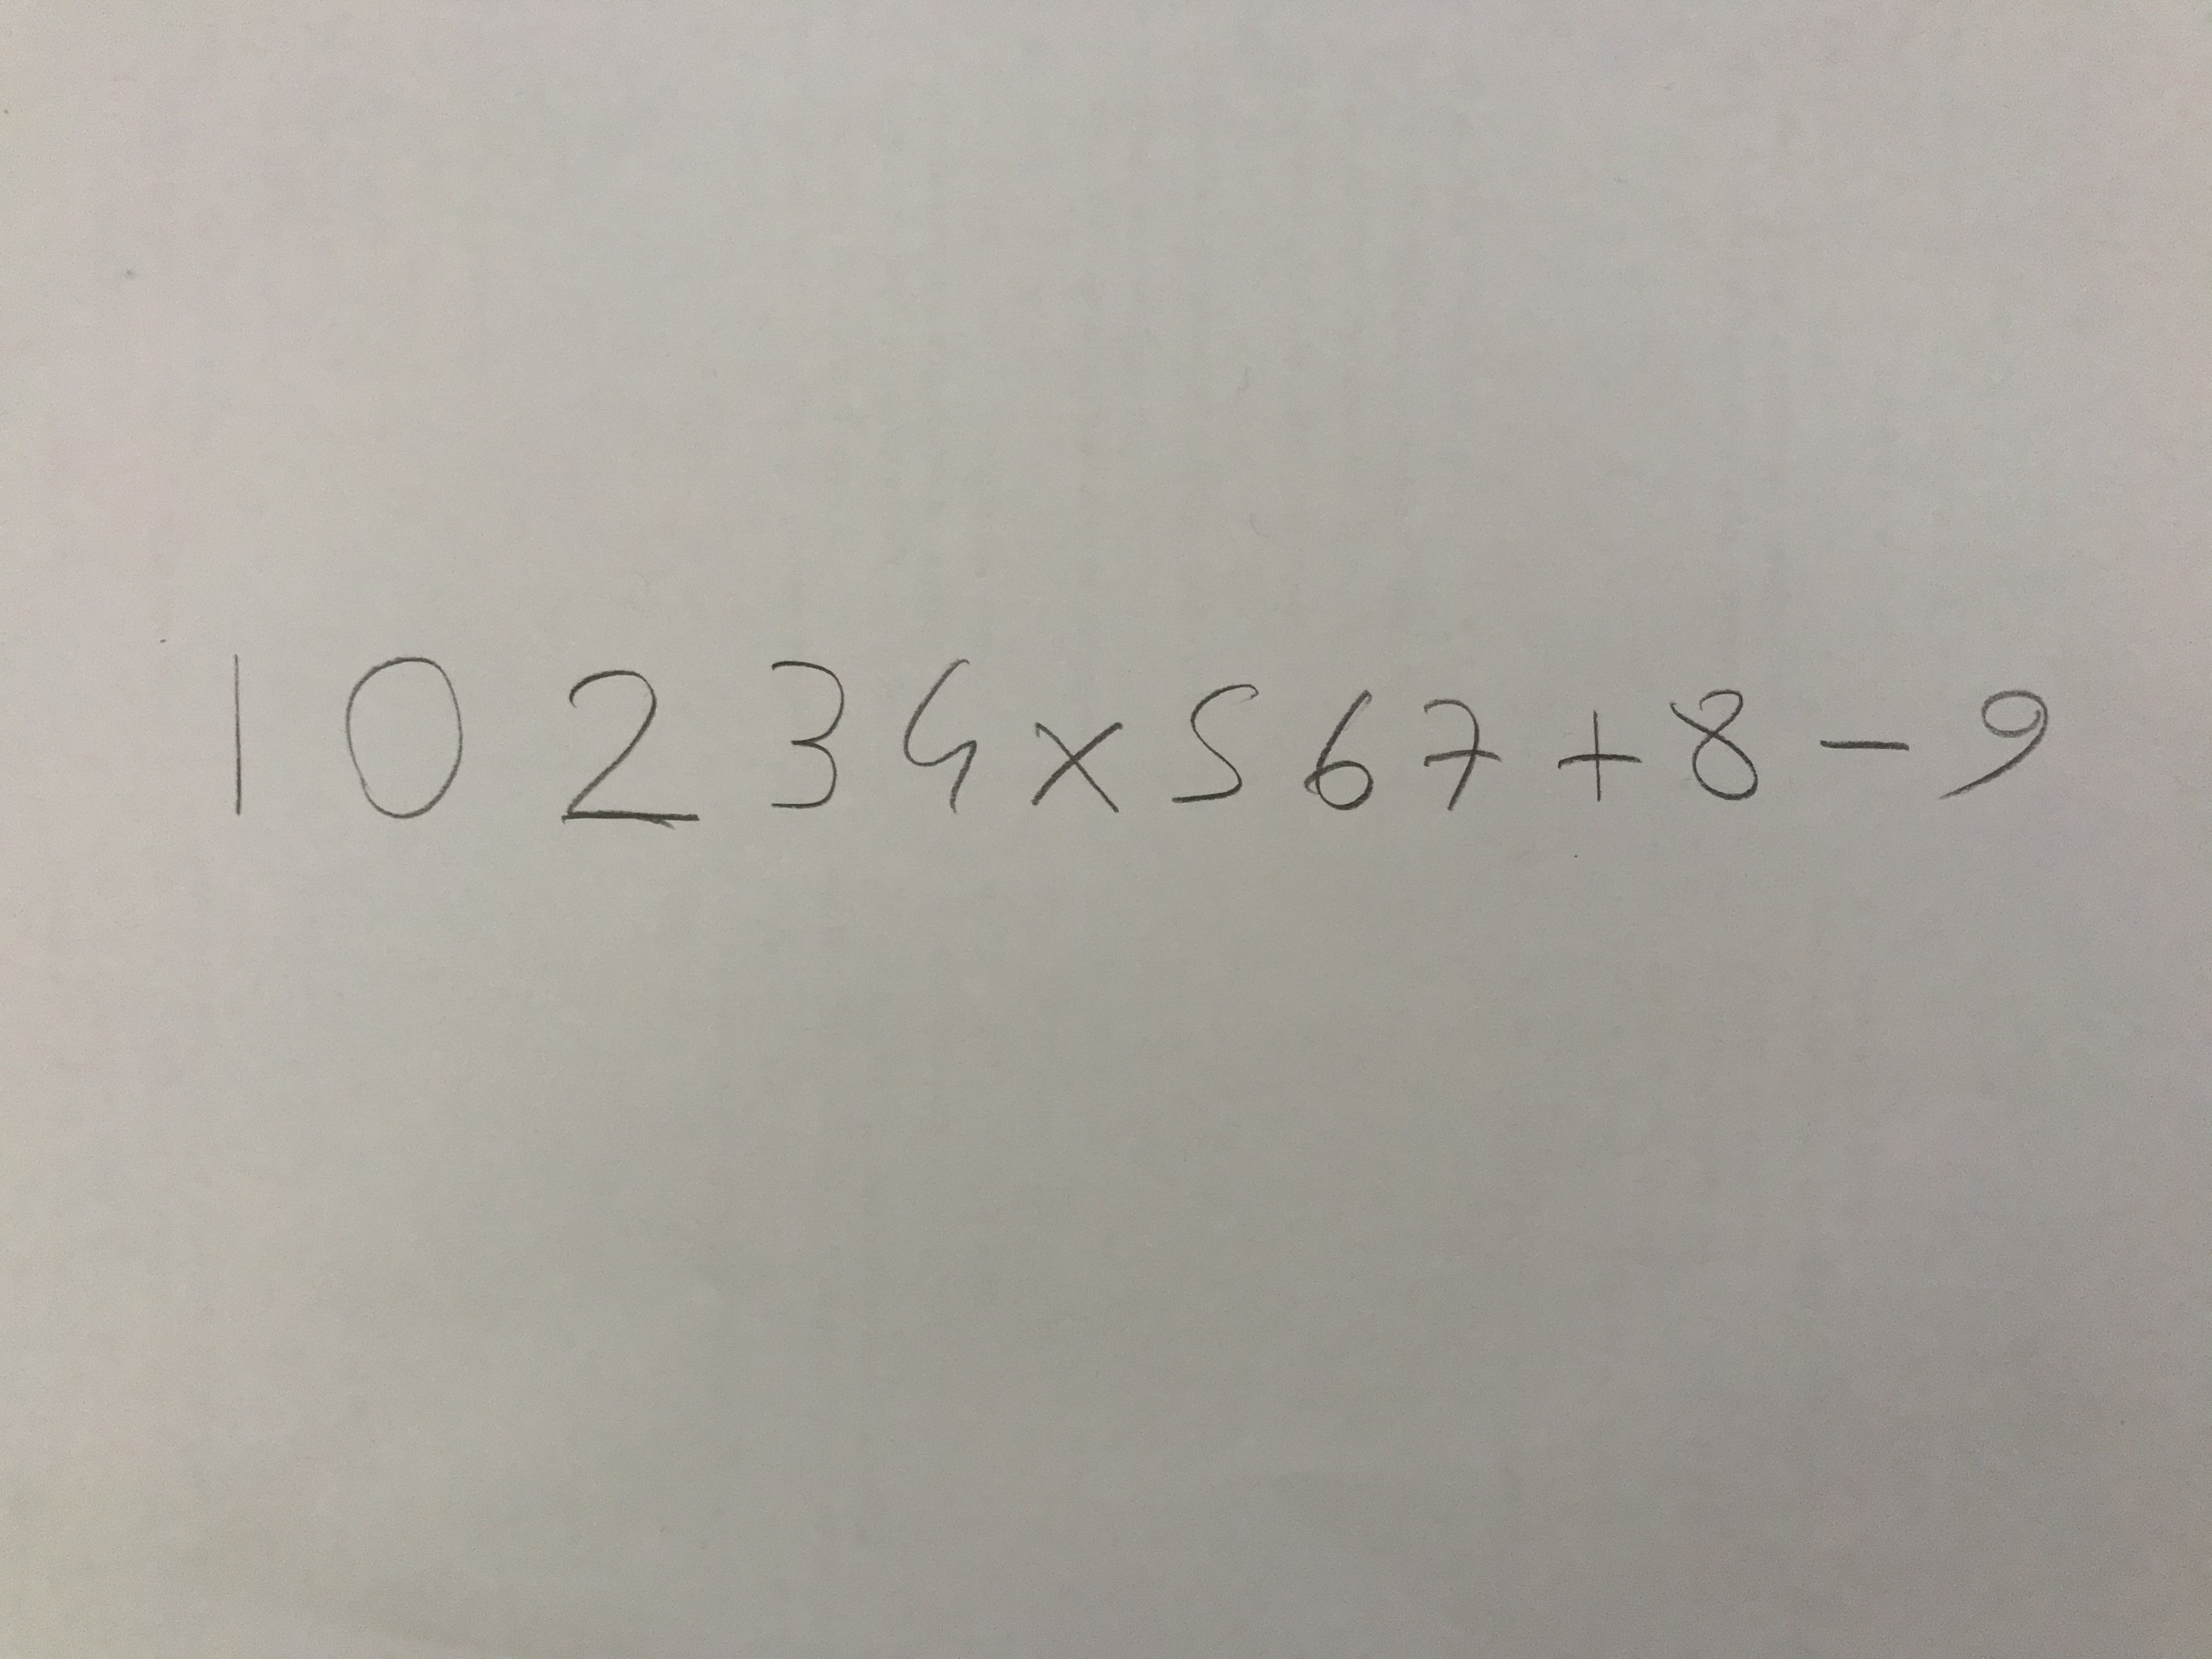 1 0 2 3 4 x 5 6 7 + 8 - 9